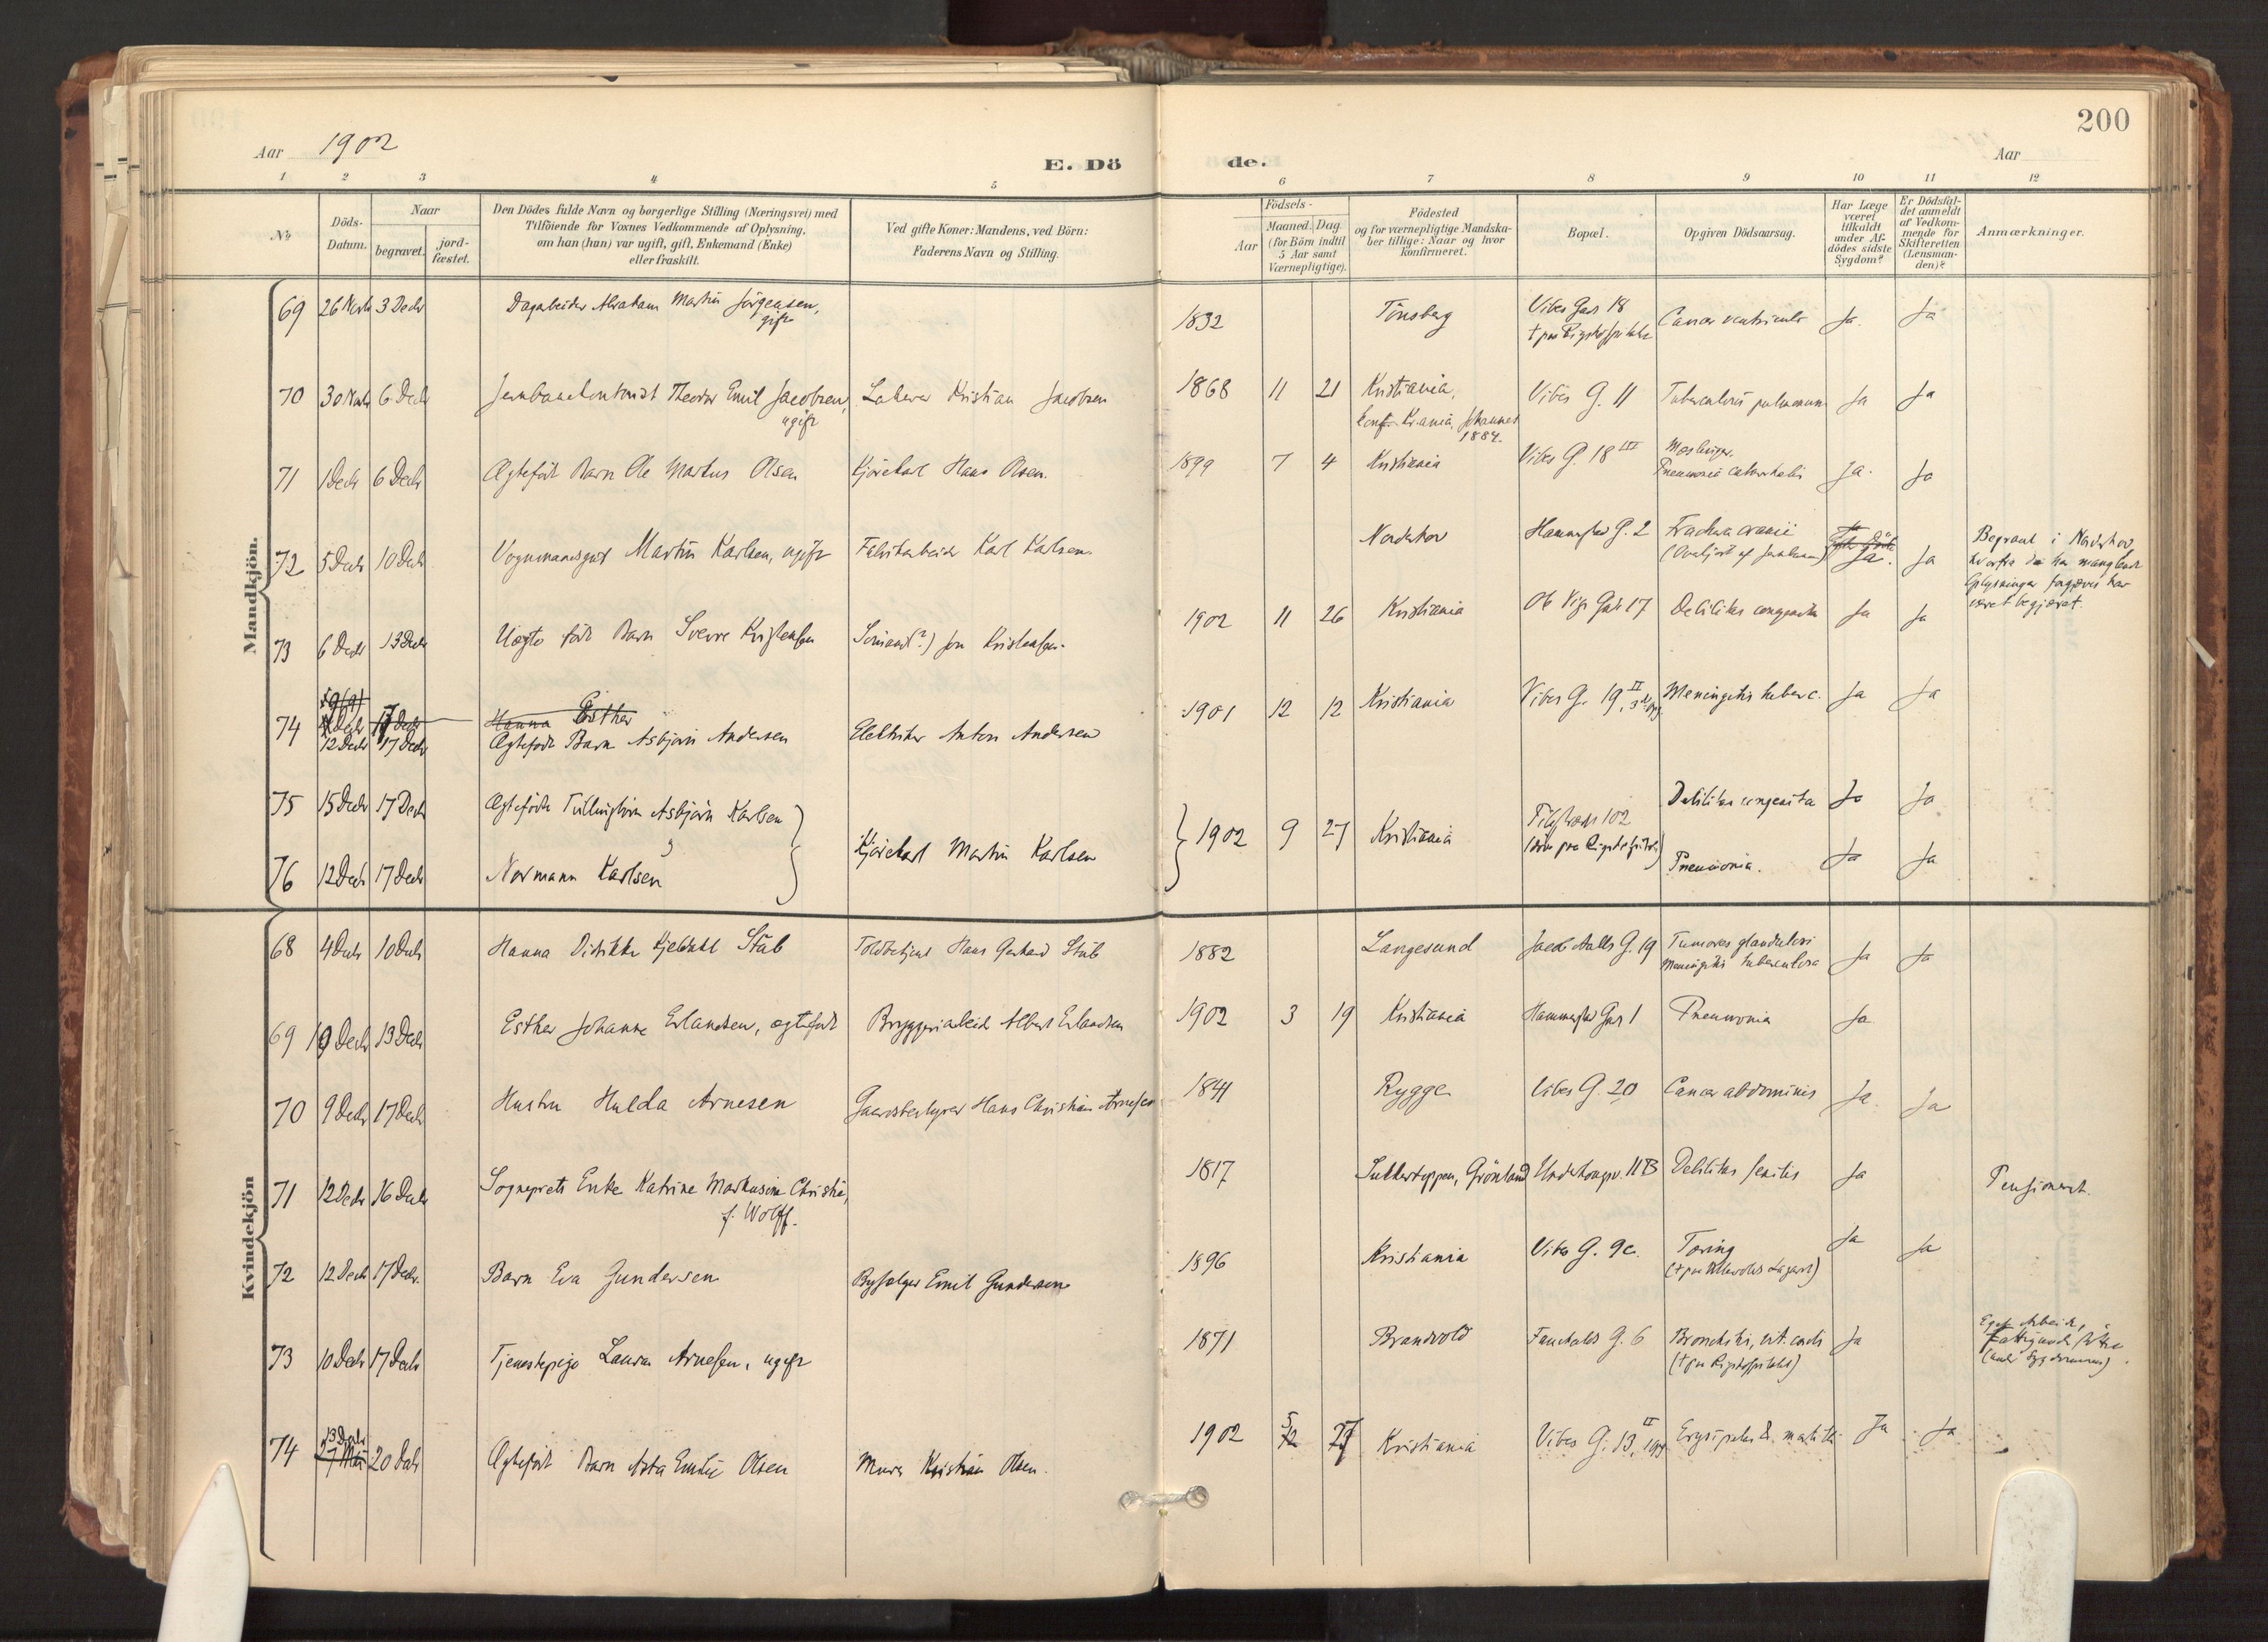 200
Aar 1902
E. Dö de.
Aar
1 2 3 4 5 6 7 8 9 10 11 12
No
Döds-Datum.
Naar
begravet.
jord-fæstet.
Den Dödes fulde Navn og borgerlige Stilling (Næringsvei) med
Tilföiende for Voxnes Vedkommende af Oplysning,
om han (hun) var ugift, gift, Enkemand (Enke)
eller fraskilt.
Ved gifte Koner: Mandens, ved Börn:
Faderens Navn og Stilling.
Födsels-
Aar
Maaned. Dag.
(for Börn indtil
5 Aar samt
Værnepligtige).
Födested
og for værnepligtige Mandska-
ber tillige: Naar og hvor
konfirmeret.
Bopæl.
Opgiven Dödsaarsag.
Har Læge
været
tilkaldt
under Af-
dödes sidste
Sygdom?
Er Dödsfal-
det anmeldt
af Vedkom-
mende for
Skifteretten
(Lensman-
den)?
Anmærkninger.
Mandkjön.
69 26 Novbr 3 Decbr Abraham Martin Jörgensen, gift 1832 Tönsberg Vibes Gad 18 Cancer ventriculi Ja Ja
† paa Rigshospitalet
70 30 Novbr 6 Decbr Theodor Emil Jacobsen, ugift Kristian Jacobsen 1868 11 21 Kristiania, Vibes G. 11 Tuberculosis pulmonum Ja Ja
konf. Kr.ania, Johannes
1884.
71 1 Decbr 6 Decbr Ægtefödt Barn Ole Markus Olsen Kjörekarl Hans Olsen. 1899 7 4 Kristiania Vibes G. 18 III Mæslinger. Ja. Ja
Pneumonia catarrhalis
72 5 Decbr 10 Decbr Vognmandsgut Martin Karlsen, ugift Fabrikarbeider Karl Karlsen. Nordskov Hammersta G. 2 Fractura cranii Ja. Ja
Begravet i Nordskov
hvorfra de her manglende
Oplysninger forgjæves har
været begjæret.
73 6 Decbr 13 Decbr Uægte födt Barn Sverre Kristensen Sömand(?) Kristensen. 1902 11 26 Kristiania 17 Debilitas congenita Ja Ja
74 12 Decbr 17 Decbr Hanna Esther
Ægtefödt Barn Asbjörn Andersen Elektriker Anton Andersen 1901 12 12 Kristiania Vibes G. 19 II Meningitis tuberc. Ja Ja
75 15 Decbr 17 Decbr Ægtefödt Tvillingbörn Asbjörn Karlsen Debilitas congenita Ja Ja
Kjörekarl Martin Karlsen 1902 9 27 Kristiania 102
76 12 Decbr 17 Decbr Normann Karlsen Pneumonia. Ja Ja
Kvindekjön
68 4 Decbr 10 Decbr Hanna Stub Toldbetjent Hans Gerhard Stub 1882 Langesund Jacob Aalls G. 19 Tumores glandulosi Ja Ja
Meningitis tuberculosa
69 10 Decbr 13 Decbr Esther Johanne Erlandsen, ægtefödt Bryggeriarbeider Albert Erlandsen 1902 3 19 Kristiania Hammersta Gad 1 Pneumonia Ja
70 9 Decbr 17 Decbr Hustru Hulda Arnesen Gaardsbestyrer Hans Christian Arnesen 1841 Rygge Vibes G. 20 Cancer abdominis Ja. Ja
71 12 Decbr 16 Decbr Sogneprests Enke Katrine Markusine Christie, 1817 Sukkertoppen, Grönland 11 B Debilitas senilis Ja Pensioneret.
f. Wolff.
72 12 Decbr 17 Decbr. Barn Eva Gundersen Emil Gundersen 1896 Kristiania Vibes G. 9c. Tæring Ja Ja
(† paa Ullevolds Lazaret)
73 10 Decbr 17 Decbr Tjenestepige Laura Arnesen, ugift 1871 Brandvold Fauchalds G. 6 Bronchitis, vit. cordis Ja
(† paa Rigshospitalet)
Eget Arbeide,
(under Sygdommen).
74 13 Decbr 20 Decbr Ægtefödt Barn Asta Emilie Olsen Murer Kristian Olsen. 1902 5 27 Kristiania Vibes G. 13 II Ja Ja